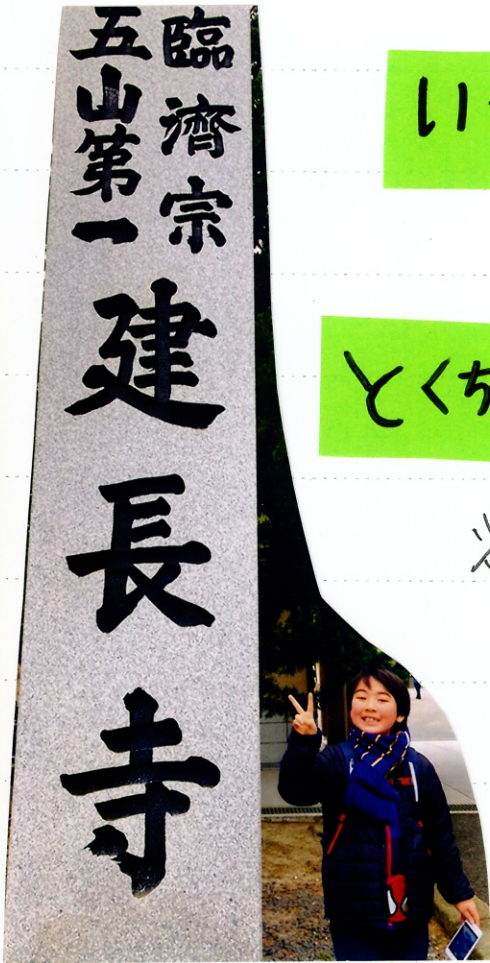 臨濟宗
五山第一
建長寺
い
とくち